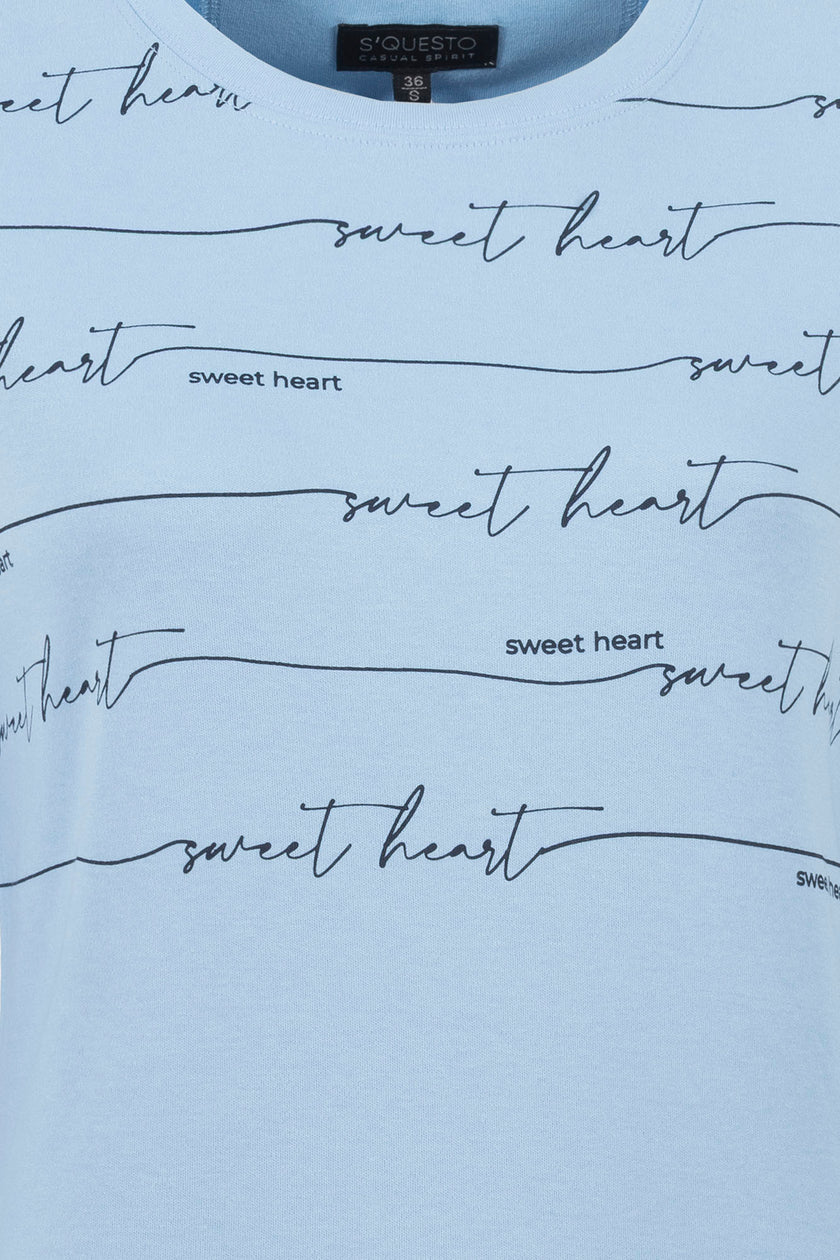 S'QUESTO
CASUAL SPIRIT
36
S
sweet heart
heart sweet
sweet heart
sweet heart
sweet heart
heart sweet
sweet heart
sweet heart